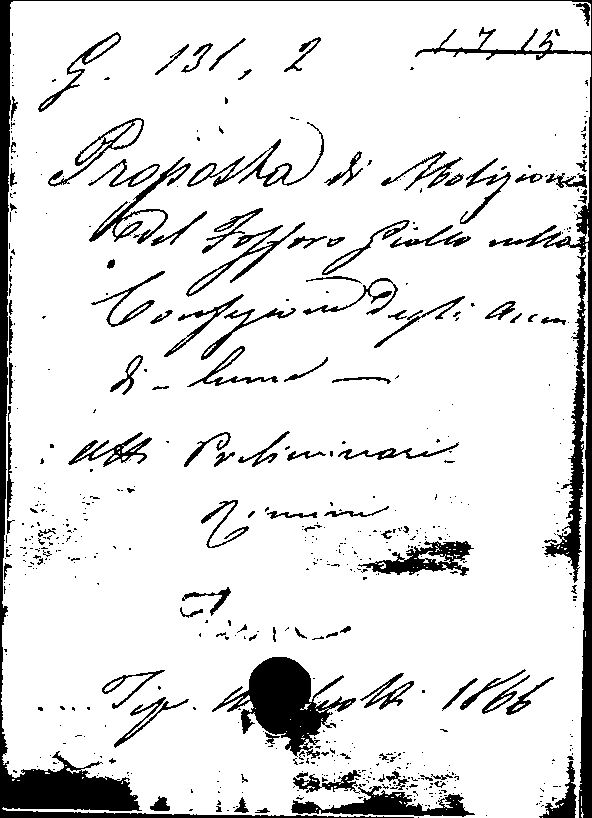 G. 131, 2
1, 7, 15
Proposta di Abolizione
del Fosforo giallo nella
Confezione degli accen
di-lume —
Atti Preliminari
Rimini
Tip. 1866